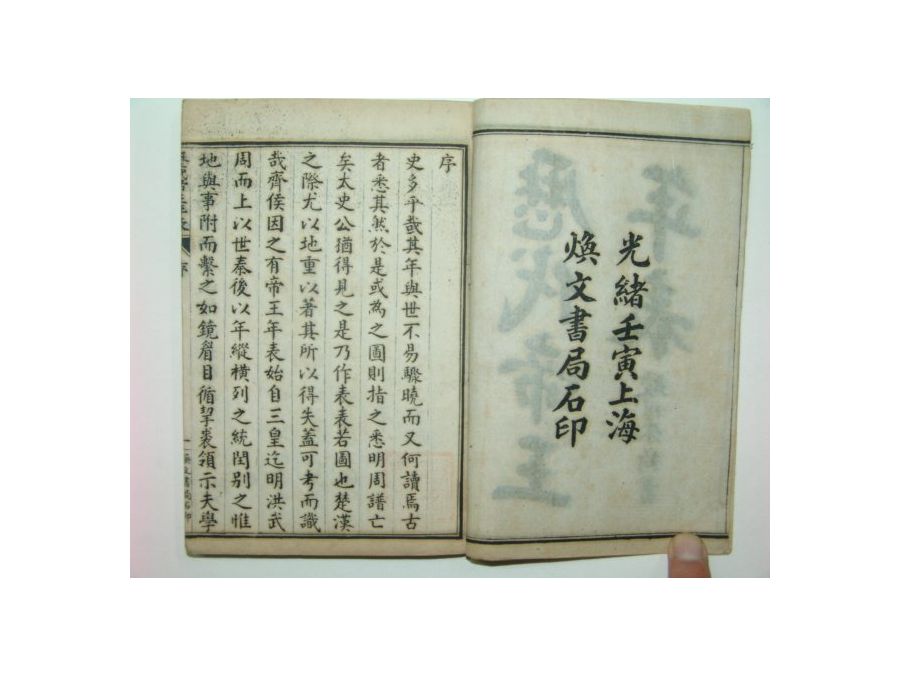 光緒壬寅上海
煥文書局石印
序
史多乎哉其年與世不易驟曉而又何讀焉古
者悉其然於是或為之圖則指之悉明周譜亡
矣太史公猶得見之是乃作表表若圖也楚漢
之際尤以地重以著其所以得失蓋可考而識
哉齊侯因之有帝王年表始自三皇迄明洪武
周而上以世秦後以年縱橫列之統閏別之惟
地與事附而繫之如鏡眉目循挈裘領示夫學
序
歷代帝王
年表